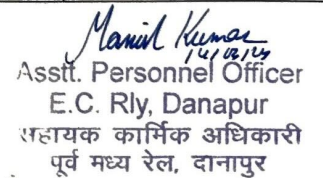 Manish Kumar
14/02/24
Asstt. Personnel Officer
E.C. Rly, Danapur
सहायक कार्मिक अधिकारी
पूर्व मध्य रेल, दानापुर